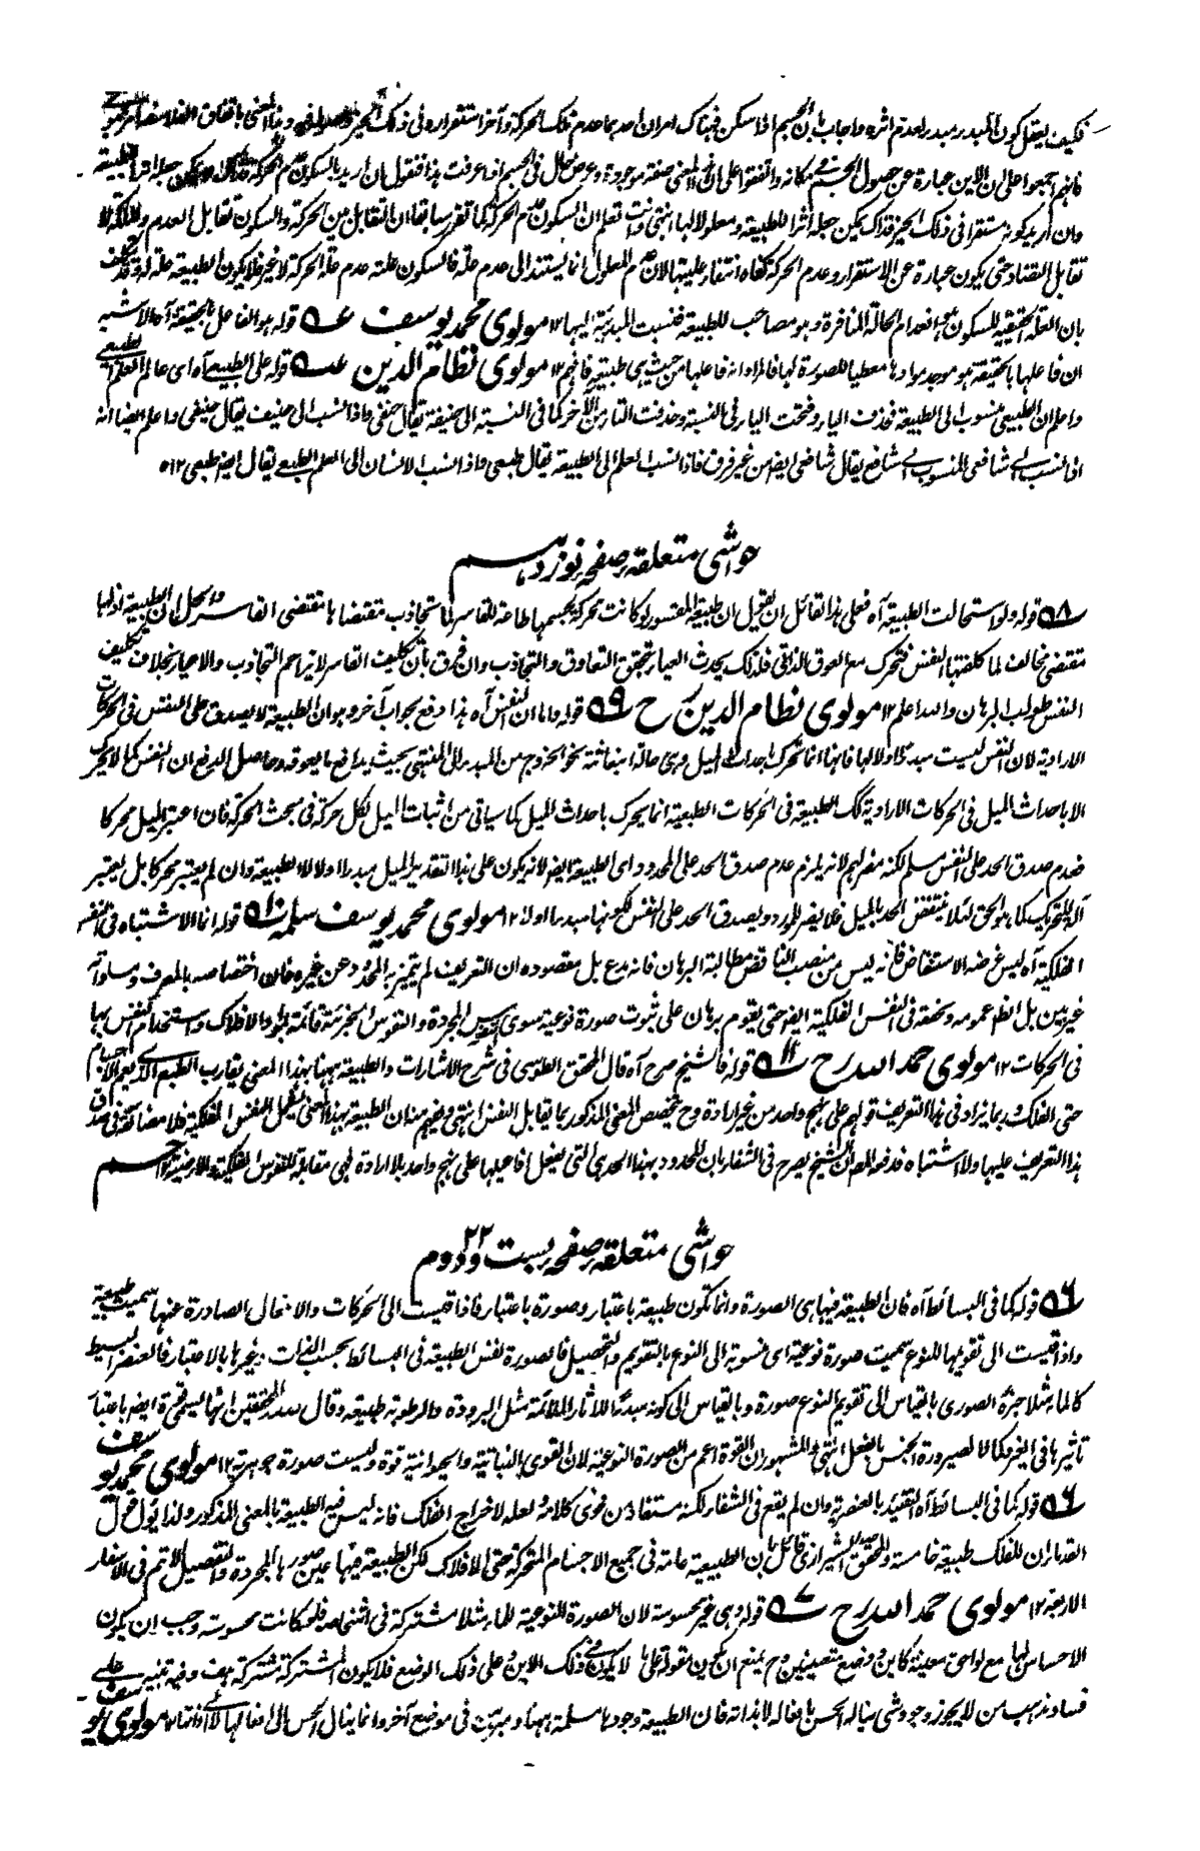 فكيف يعقل كون المبدء مبدء لعدم اثره واجاب بان الجسم اذا سكن فهناك امران احدهما عدم تلك الحركة وآخر استقراره فى ذلك الحيز وهذا المعنى باتفاق الفلاسفة
فانهم اجمعوا على ان الاين عبارة عن حصول الجسم فى مكانه واتفقوا على ان هذا المعنى صفة موجودة وعرض حال فى الجسم اذا عرفت هذا فنقول ان اريد بالسكون عدم الحركة
وان اريد كونه مستقرا فى ذلك الحيز فذاك يمكن جعله اثرا للطبيعة ومعلولا لها انتهى وانت تعلم ان السكون عدم الحركة كما تقرر سابقا ان التقابل بين الحركة والسكون تقابل العدم والملكة لا
تقابل التضاد حتى يكون عبارة عن الاستقرار وعدم الحركة كفاه انتفاء عليتها لان عدم المعلول انما يستند الى عدم علة فالسكون علته عدم علة الحركة لا غير فلا يكون الطبيعة علة له
بان العلة الحقيقية للسكون هو انعدام الحالة المنافرة وهو مصاحب للطبيعة فنسبت المبدئية اليها ١٢ مولوى محمد يوسف قوله هو الفاعل بالحقيقة آه الاشبه
ان فاعلها بالحقيقة هو موجد موادها معطيا للصورة لها فالمراد انه فاعلها من حيث هى طبيعة فافهم ١٢ مولوى نظام الدين قوله على الطبيعى آه اى عالم العلم الطبيعى
واعلم ان الطبيعى منسوب الى الطبيعة فحذفت الياء وفتحت الباء فى النسبة وحذفت التاء من الآخر كما فى النسبة الى حنيفة يقال حنفى واذا نسب الى حنيف يقال حنيفى واعلم ايضا انه
اذا نسب الى شافعى المنسوب الى شافع يقال شافعى ايضا من غير فرق فاذا نسب العلم الى الطبيعة يقال طبيعى واذا نسب الانسان الى العلم الطبيعى يقال ايضا طبيعى ١٢
حواشى متعلقه صفحه نوزدهم
٥٨ قوله ولو استحالت الطبيعة آه فعلى هذا القائل ان يقول ان طبيعة المقسور لو كانت محركة لجسمها طاعة للقاسر لما تجاذب مقتضاها مقتضى القاسر والحل ان الطبيعة اذ لها
مقتضى مخالف لما كلفتها النفس فتحرك مع العوق الذاتى فلذلك يحدث العياء لتحقق التعاوق والتجاذب وان فرق بان تكليف القاسر لا يزاحم التجاذب والاعياء بخلاف تكليف
النفس طولب البرهان والله اعلم ١٢ مولوى نظام الدين رح ٥٩ قوله واما ان النفس آه هذا دفع بجواب آخر وهو ان الطبيعة لا يصدق على النفس فى الحركات
الارادية لان النفس ليست مبدءا اولا لها فانها انما تحرك باحداث الميل وهى حالة انبعاثية نحو الخروج من المبدء الى المنتهى بحيث يدافع ما يعوقه وحاصل الدفع ان النفس كما لا يحرك
الا باحداث الميل فى الحركات الارادية كذلك الطبيعة فى الحركات الطبيعية انما يحرك باحداث الميل كما سياتى من اثبات الميل لكل حركة فى مبحث الحركة فان اعتبر الميل محركا
فعدم صدق الحد على النفس مسلم لكنه مضر لهم لانه يلزم عدم صدق الحد على المحدود اى الطبيعة ايضا لانه يكون على هذا التقدير الميل مبدءا اولا لا الطبيعة وان لم يعتبر محركا بل يعتبر
آلة للتحريك كما هو الحق لئلا ينتقض الحد بالميل فلا يضر للمورد ويصدق الحد على النفس لكونها مبدءا اولا ١٢ مولوى محمد يوسف سلمه ٥١٠ قوله انما الاشتباه فى النفس
الفلكية آه ليس غرضه الاستنقاض فانه ليس من منصب الناقض مطالبة البرهان فانه مدع بل مقصوده ان التعريف لم يتميز به المحدود عن غيره فان اختصاصه بالمعرف ومساواته
غير بين بل الظاهر عمومه وتحققه فى النفس الفلكية ايضا حتى يقوم برهان على ثبوت صورة نوعية سوى النفس المجردة والنفوس الجزئية قائمة بمواد الافلاك واستخدام النفس بها
فى الحركات ١٢ مولوى حمد الله رح ١١ قوله فالشيخ صرح آه قال المحقق الطوسى فى شرح الاشارات والطبيعة ههنا بهذا المعنى يقارب الطبع الذى يعم الاجسام
حتى الفلك وربما يزاد فى هذا التعريف قولهم على نهج واحد من غير ارادة وح يتخصص المعنى المذكور بما تقابل النفس انتهى ويفهم منه ان الطبيعة بهذا المعنى تشمل النفس الفلكية فلا مضائقة فى صدق
هذا التعريف عليها ولا اشتباه فدفعه المص ان الشيخ يصرح فى الشفاء بان المحدود بهذا الحد هى التى تفعل افاعيلها على نهج واحد بلا ارادة فهى مقابلة للنفوس الفلكية والارضية
حواشى متعلقه صفحه بست و دوم ٢٢
٥٦ قوله كما فى البسائط آه فان الطبيعة فيها هى الصورة وانما تكون طبيعة باعتبار وصورة باعتبار فاذا قيست الى الحركات والافعال الصادرة عنها سميت طبيعة
واذا قيست الى تقويمها للنوع سميت صورة نوعية اى منسوبة الى النوع بالتقويم والتحصيل فالصورة نفس الطبيعة فى البسائط بحسب الذات وغيرها بالاعتبار فالعنصر البسيط
كالماء مثلا جزئه الصورى بالقياس الى تقويم النوع صورة وبالقياس الى كونه مبدءا للآثار الملائمة مثل البرودة والرطوبة طبيعة وقال سند المحققين انها ليسمى قوة ايضا باعتبار
تاثيرها فى الغير وكمالا لصيرورة الجنس بالفعل انتهى والمشهور ان القوة اعم من الصورة النوعية لان القوى النباتية والحيوانية قوة وليست صورة جوهرية ١٢ مولوى محمد يوسف
٥٦ قوله كما فى البسائط آه التقييد بالعنصرية وان لم يقع فى الشفاء لكنه مستفاد من فحوى كلامه ولعله لاخراج الفلك فانه ليس فيه الطبيعة بالمعنى المذكور ولذا يؤل قول
القدماء ان للفلك طبيعة خامسة والمحقق الشيرازى قائل بان الطبيعة عامة فى جميع الاجسام المتحركة حتى الافلاك لكن الطبيعة فيها عين صورها المجردة والتفصيل الاتم فى الاسفار
الاربعة ١٢ مولوى حمد الله رح ٥٧ قوله وهى غير محسوسة لان الصورة النوعية للماء مثلا مشتركة فى اشخاصه فلو كانت محسوسة وجب ان يكون
الاحساس لها مع لواحق معينة كاين ووضع متعينين وح يمتنع ان يكون مقولة على ما لا يكون فى ذلك الاين وعلى ذلك الوضع فلا يكون المشتركة مشتركة هف وفيه تنبيه على
فساد مذهب من لا يجوز وجود شئ يناله الحس بافعاله لا بذاته فان الطبيعة وجودها مسلمة ههنا ومبرهنة فى موضع آخر وانما ينال الحس الى افعالها لا ذاتها ١٢ مولوى يوسف